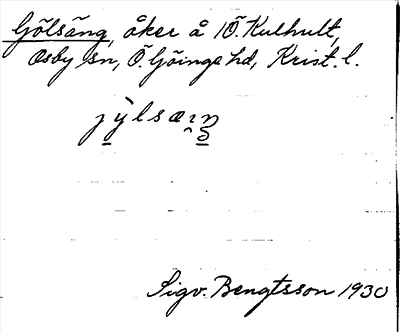 Gölsäng, åker å 1 Ö. Kulhult,
Osby sn, Ö. Göinge hd, Krist. l.
Sigv. Bengtsson 1930